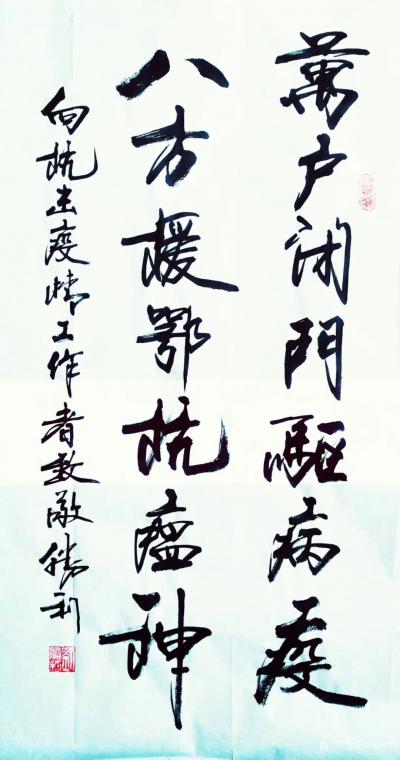 萬户闭門驅病疫
八方援鄂抗瘟神
向抗击疫情工作者致敬勝利